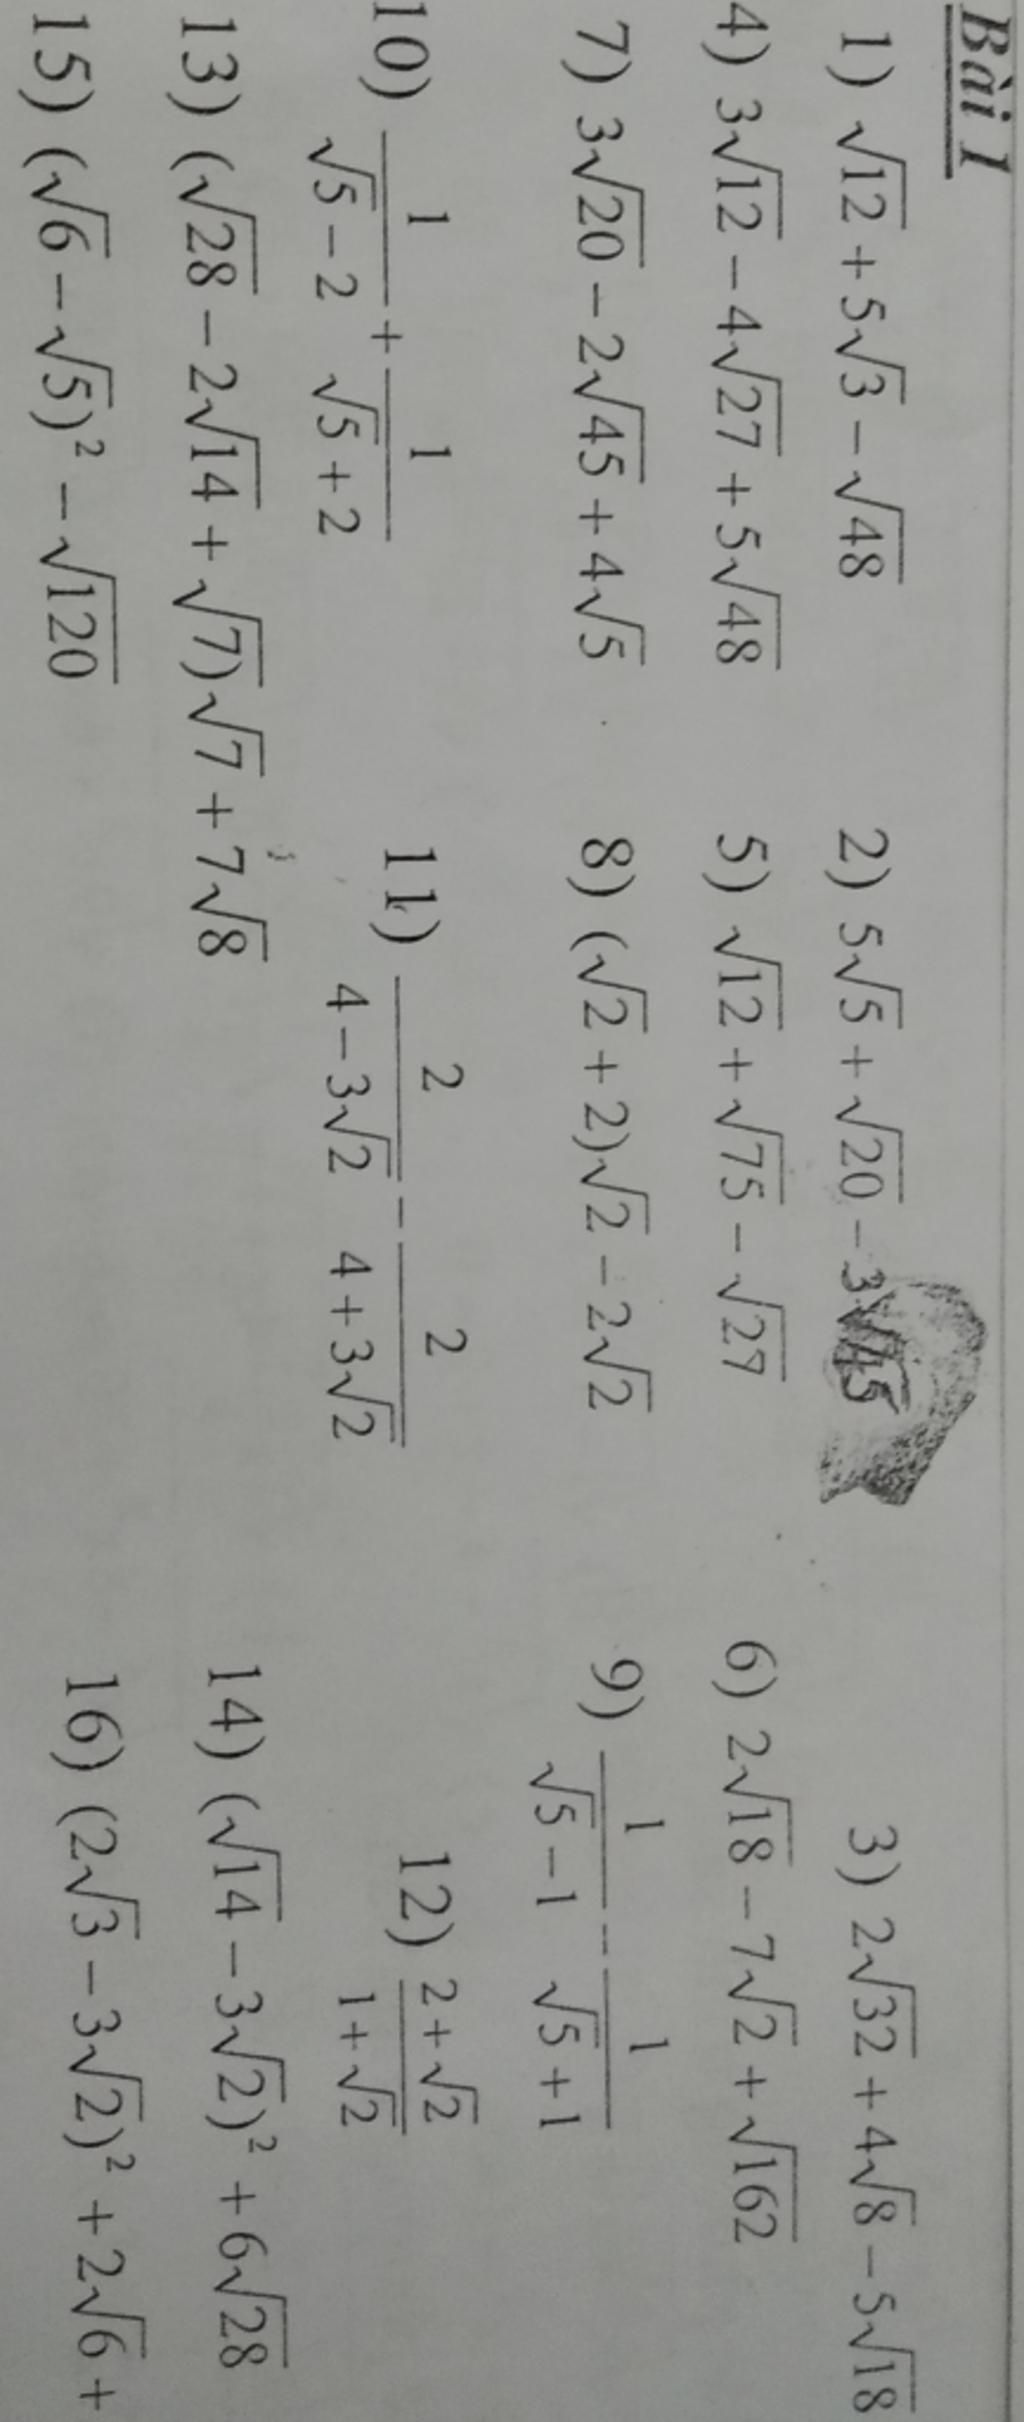 Bài 1
1) √12 + 5√3 − √48 2) 5√5 + √20 − 3√45 3) 2√32 + 4√8 − 5√18
4) 3√12 − 4√27 + 5√48 5) √12 + √75 − √27 6) 2√18 − 7√2 + √162
7) 3√20 − 2√45 + 4√5 8) (√2 + 2)√2 − 2√2 9) 1/(√5 − 1) − 1/(√5 + 1)
10) 1/(√5 − 2) + 1/(√5 + 2) 11) 2/(4 − 3√2) − 2/(4 + 3√2) 12) (2 + √2)/(1 + √2)
13) (√28 − 2√14 + √7)√7 + 7√8 14) (√14 − 3√2)² + 6√28
15) (√6 − √5)² − √120 16) (2√3 − 3√2)² + 2√6 +